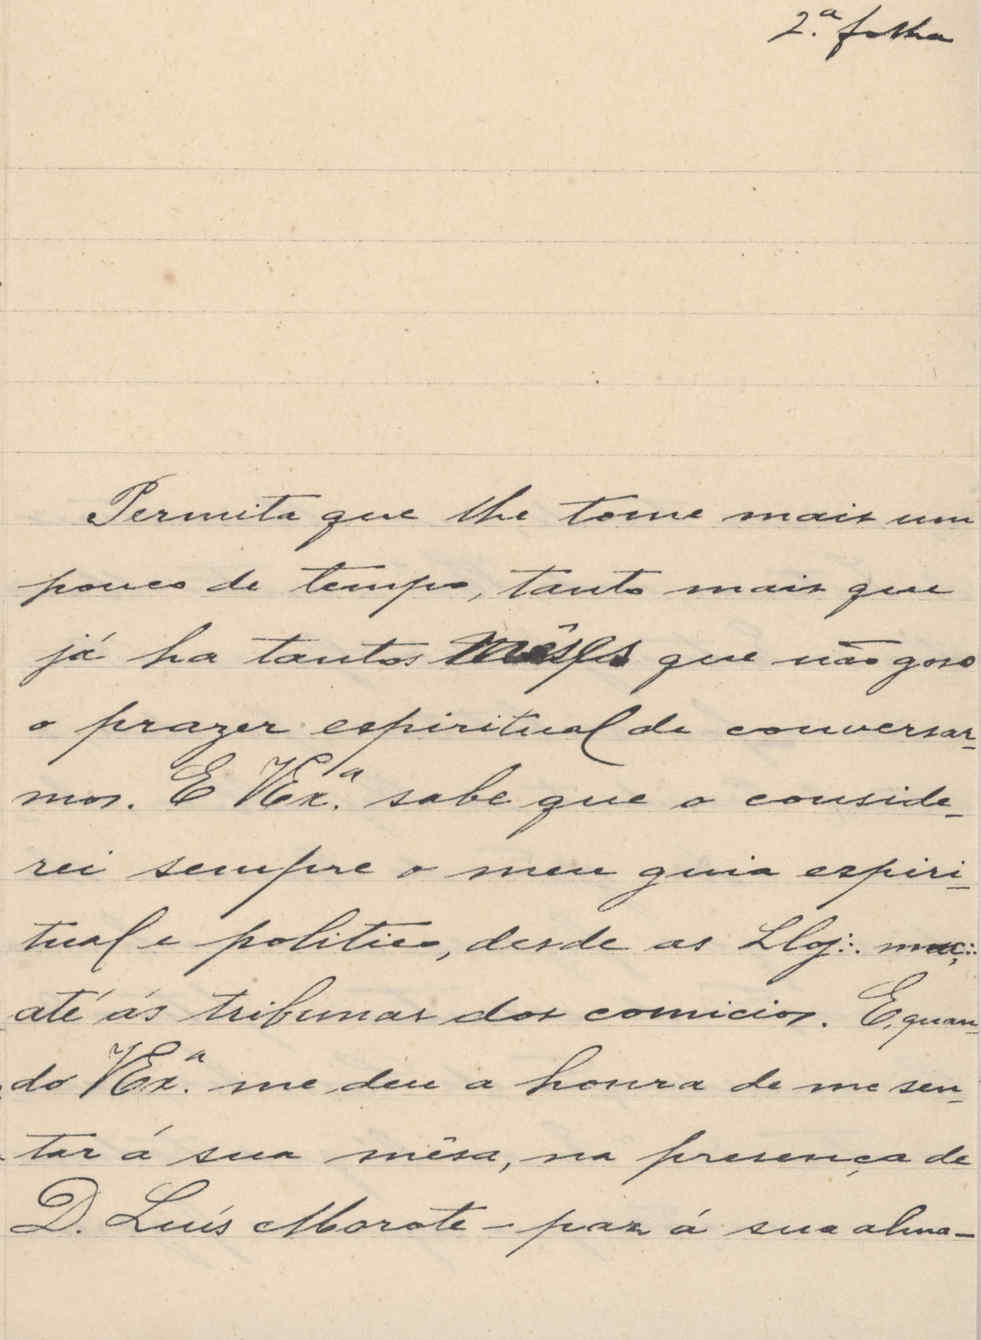 2.ª folha
Permita que lhe tome mais um
pouco de tempo, tanto mais que
já ha tantos mêses que não goso
o prazer espiritual de conversar-
mos. E VEx.ª sabe que o conside-
rei sempre o meu guia espiri-
tual e politico, desde as LLoj∴ maç∴
até ás tribunas dos comicios. E, quan-
do VEx.ª me deu a honra de me sen-
tar á sua mêsa, na presença de
D. Luís Morote – paz á sua alma –